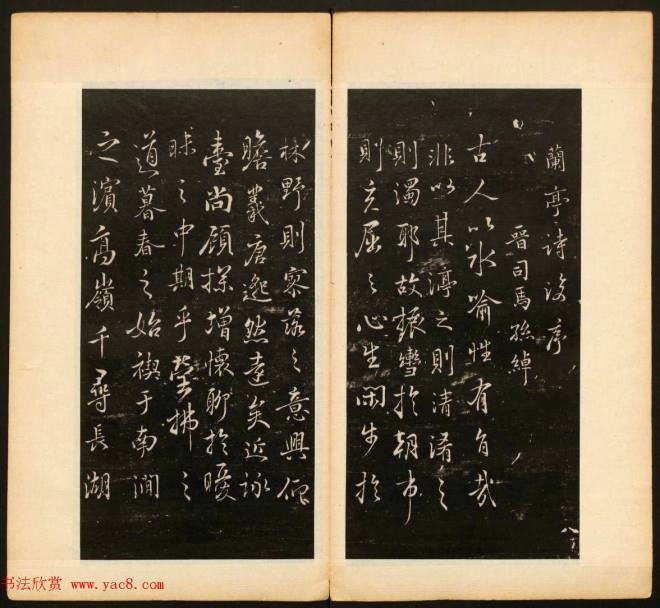 蘭亭詩後序
晉司馬孫綽
古人以水喻性有旨哉
非以其渟之則清淆之
則濁耶故振轡於朝市
則充屈之心生閑步於
林野則寥落之意興仰
瞻羲唐邈然遠矣近詠
臺尚顧探增懷聊於曖
昧之中期乎瑩拂之
道暮春之始禊于南澗
之濱高嶺千尋長湖
书法欣赏 www.yac8.com